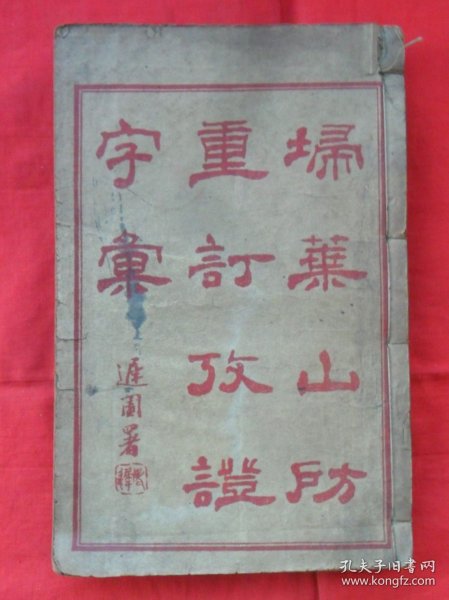 埽葉山防
重訂攷證
字彙
遯園署
孔夫子旧书网
www.kongfz.com